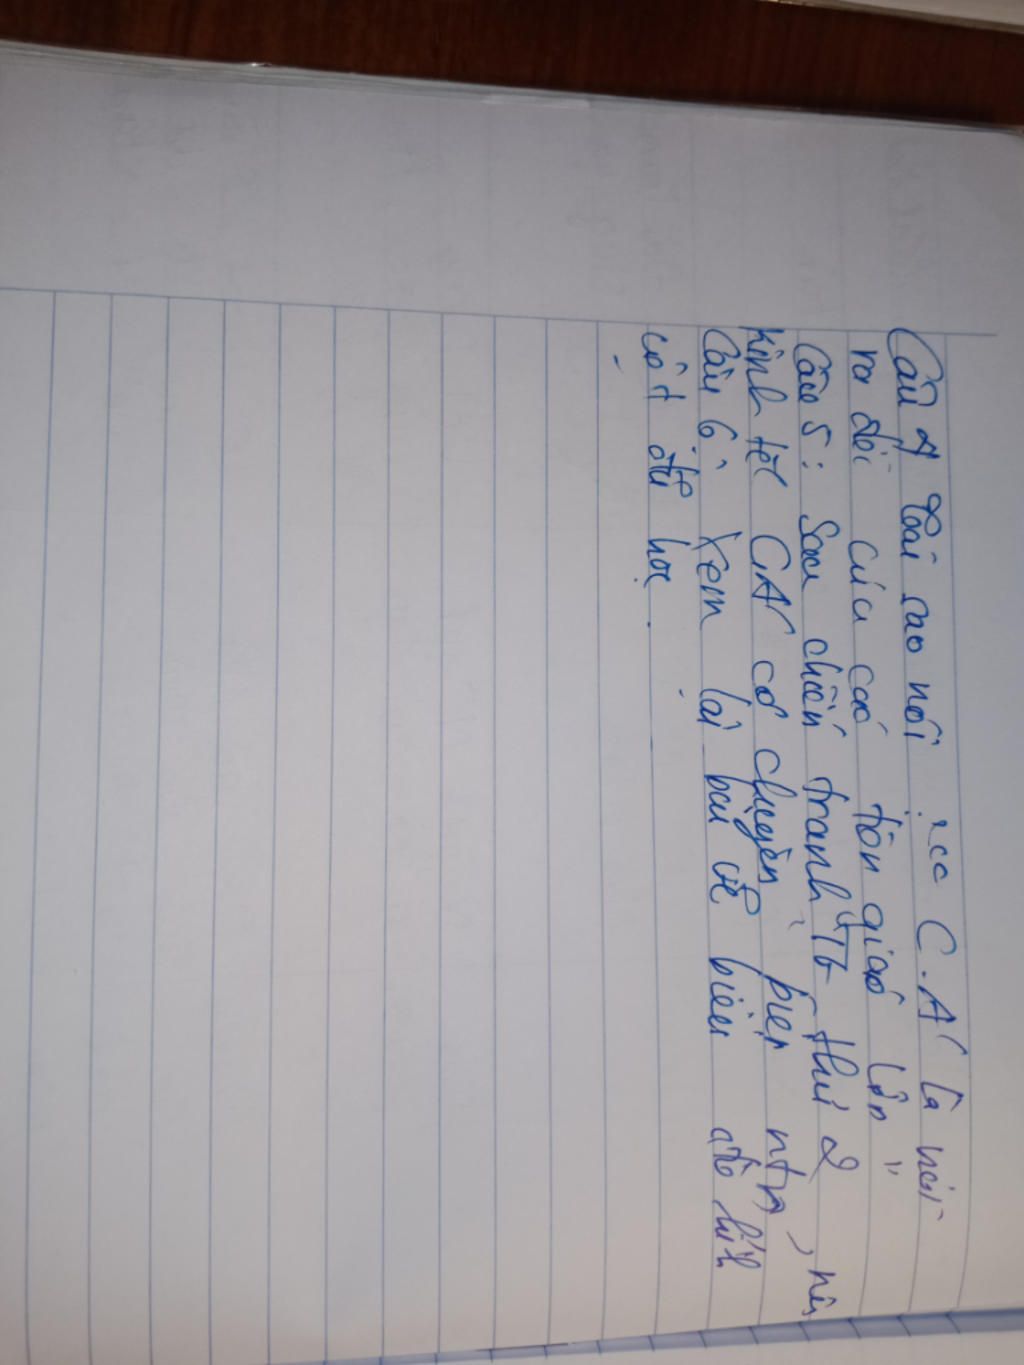 Câu 4 Tại sao nói : "CC C.Á là nơi
ra đời của các tôn giáo lớn "
Câu 5 : Sau chiến tranh TG thứ 2 , nền
kinh tế C.Á có chuyển biến ntn
Câu 6 : Xem lại bài về biểu đồ hình
cột để học .